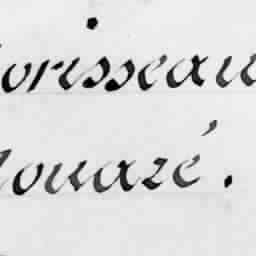 orisseau
louazé.